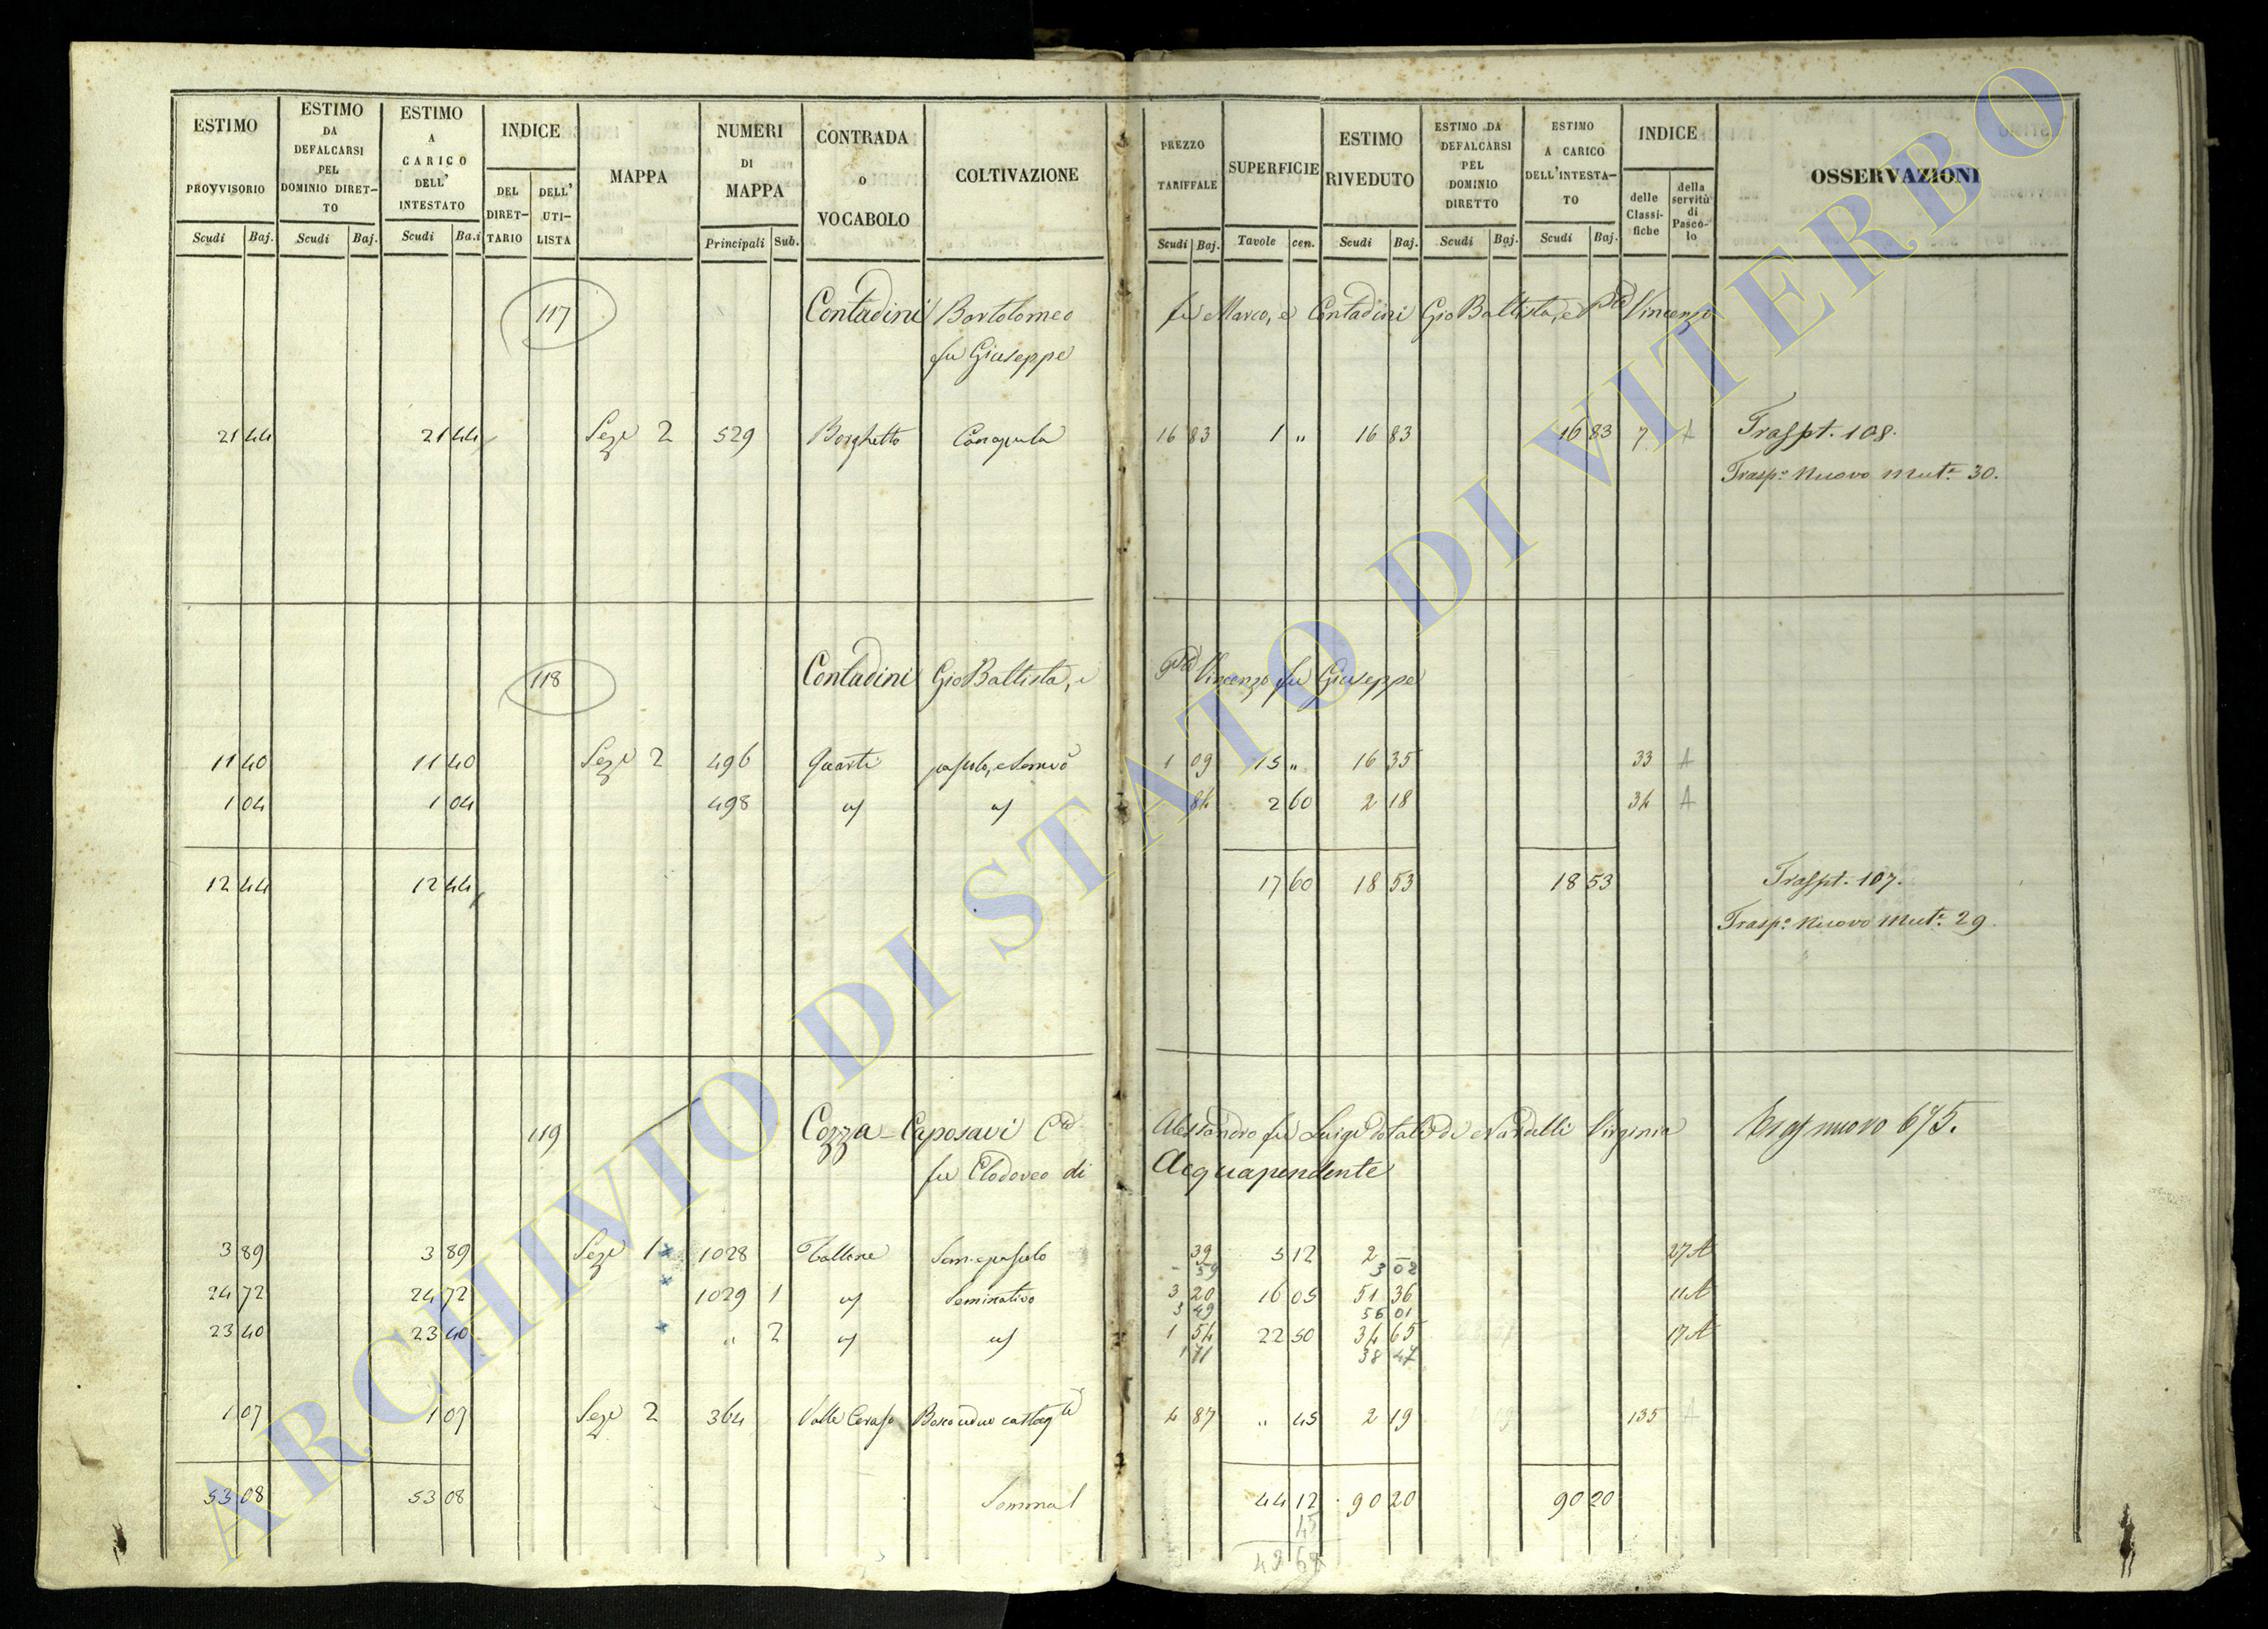 ESTIMO PROVVISORIO Scudi Baj.
ESTIMO DA DEFALCARSI PEL DOMINIO DIRETTO Scudi Baj.
ESTIMO A CARICO DELL' INTESTATO Scudi Ba.i
INDICE DEL DIRETTARIO DELL' UTILISTA
MAPPA
NUMERI DI MAPPA Principali Sub.
CONTRADA O VOCABOLO
COLTIVAZIONE
PREZZO TARIFFALE Scudi Baj.
SUPERFICIE Tavole cen.
ESTIMO RIVEDUTO Scudi Baj.
ESTIMO DA DEFALCARSI PEL DOMINIO DIRETTO Scudi Baj.
ESTIMO A CARICO DELL'INTESTATO Scudi Baj.
INDICE delle Classifiche della servitù di Pascolo
OSSERVAZIONI
117 Contadini Bortolomeo fu Marco, e Contadini Gio Battista, e Vincenzo
fu Giuseppe
21 44 21 44 Seze 2 529 Borghetto Canapula 16 83 1 " 16 83 16 83 7 A Traspt. 108.
Trasp.o Nuovo Mut.e 30.
118 Contadini Gio Battista, e Vincenzo fu Giuseppe
11 40 11 40 Seze 2 496 Quarti 1 09 15 " 16 35 33 A
1 04 1 04 498 84 2 60 2 18 34 A
12 44 12 44 17 60 18 53 18 53 Traspt. 107.
Trasp.o Nuovo Mut.e 29.
119 Cozza-Caposavi Alessandro fu Luigi dotale di Nardelli Virginia Tras nuovo 675.
fu Clodoveo di Acquapendente
3 89 3 89 Seze 1 1028 39 5 12 2 — 27 A
- 59 3 02
24 72 24 72 1029 1 Seminativo 3 20 16 05 51 36 11 A
3 49 56 01
23 40 23 40 " 2 1 54 22 50 34 65 17 A
1 71 38 47
1 07 1 07 Seze 2 364 Valle Ceraso 4 87 " 45 2 19 135 A
53 08 53 08 Somma 44 12 90 20 90 20
45
ARCHIVIO DI STATO DI VITERBO